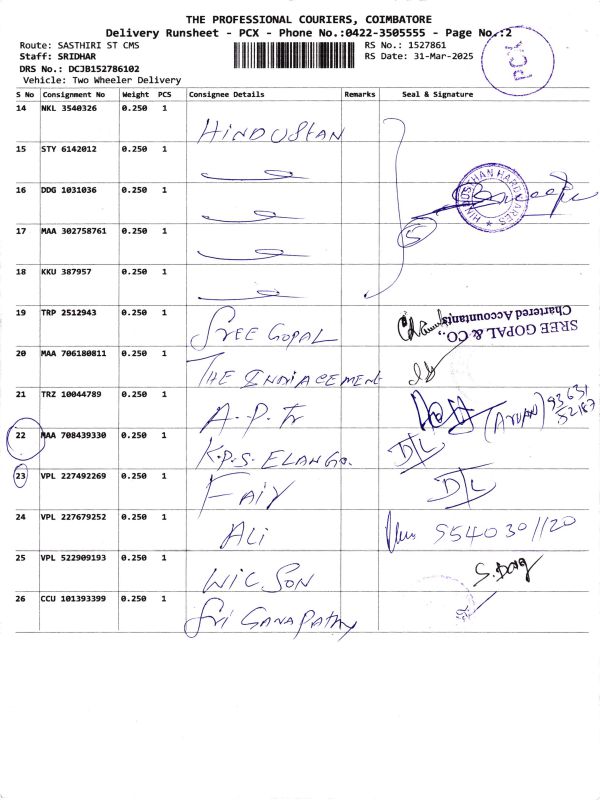 THE PROFESSIONAL COURIERS, COIMBATORE
Delivery Runsheet - PCX - Phone No.:0422-3505555 - Page No.:2
Route: SASTHIRI ST CMS RS No.: 1527861
Staff: SRIDHAR RS Date: 31-Mar-2025
DRS No.: DCJB152786102
Vehicle: Two Wheeler Delivery
PCX
S No Consignment No Weight PCS Consignee Details Remarks Seal & Signature
14 NKL 3540326 0.250 1 HINDUSTAN
15 STY 6142012 0.250 1
16 DDG 1031036 0.250 1
HINDUSTHAN HARDWARES
17 MAA 302758761 0.250 1 5
18 KKU 387957 0.250 1
19 TRP 2512943 0.250 1 SREE GOPAL
SREE GOPAL & CO.,
Chartered Accountants
20 MAA 706180811 0.250 1 THE INDIACEMENT
21 TRZ 10044789 0.250 1 A.P. Tr (ARUAN) 93631 52187
22 MAA 708439330 0.250 1 K.P.S. ELANGO. D/L
23 VPL 227492269 0.250 1 FAIY D/L
24 VPL 227679252 0.250 1 ALI 9540301120
25 VPL 522909193 0.250 1 WILSON
26 CCU 101393399 0.250 1 Sri GANAPATHY